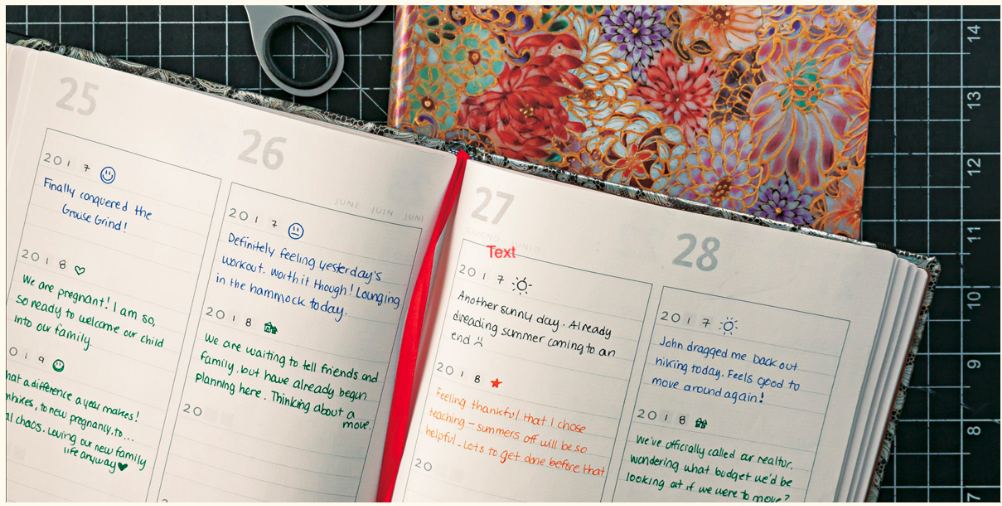 25
2017
Finally conquered the
Grouse Grind!
2018
We are pregnant! I am so,
so ready to welcome our child
into our family.
019
hat a difference a year makes!
hikes, to new pregnancy, to...
al chaos. Loving our new family
life anyway
26
JUNE JUIN JUNI
2017
Definitely feeling yesterday's
workout. Worth it though! Lounging
in the hammock today.
2018
We are waiting to tell friends and
family, but have already begun
planning here. Thinking about a
move.
20
27
Text
2017
Another sunny day. Already
dreading summer coming to an
end
2018
Feeling thankful that I chose
teaching - summers off will be so
helpful. Lots to get done before that
20
28
2017
John dragged me back out
hiking today. Feels good to
move around again!
2018
We've officially called our realtor,
wandering what budget we'd be
looking at if we were to move?
14
13
12
11
10
9
8
7